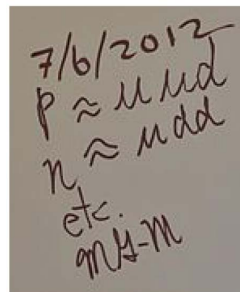 7/6/2012
p ≈ uud
n ≈ udd
etc.
MG-M